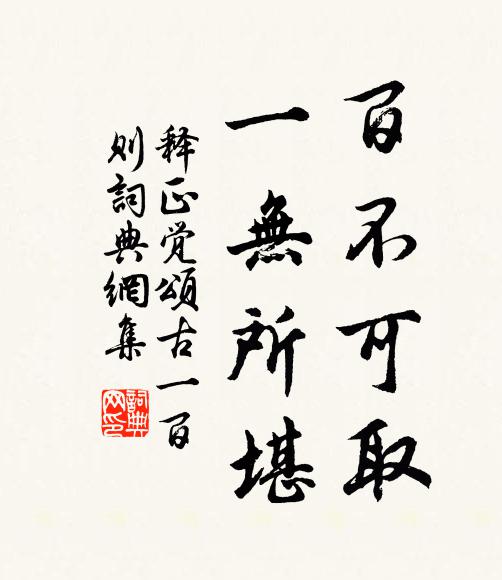 百不可取
一無所堪
释正觉頌古一百
则詞典網集
詞典
网印